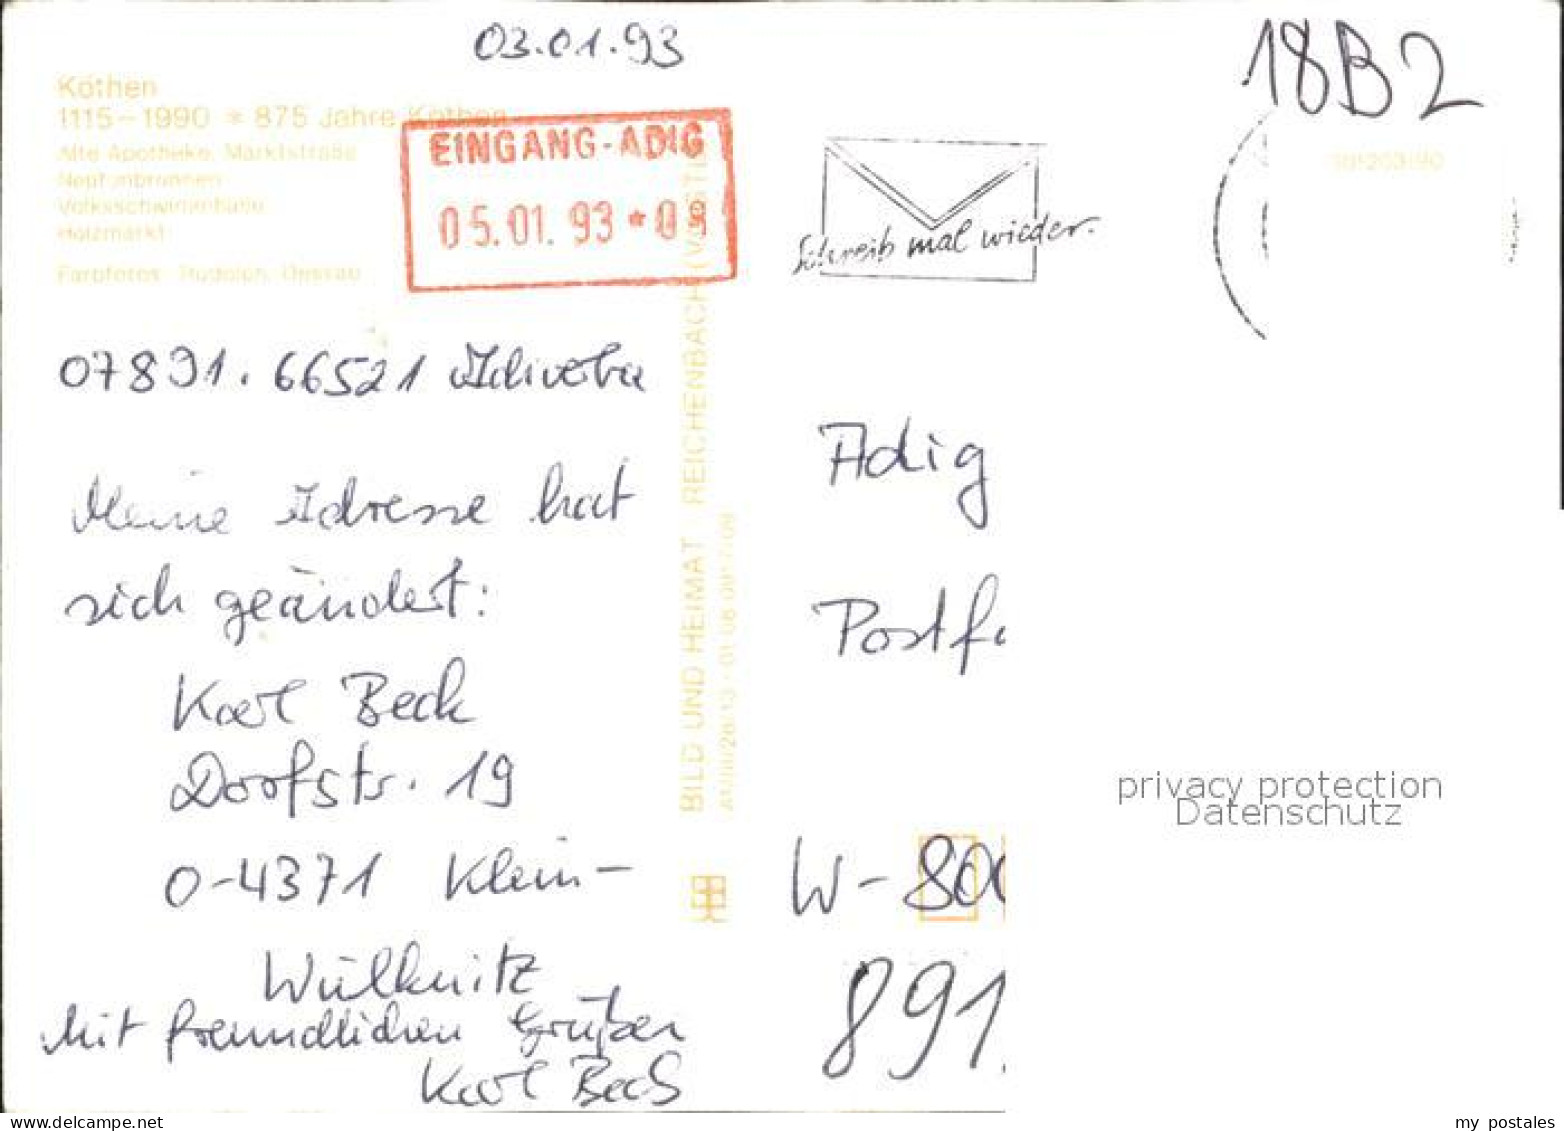 03.01.93
18B2
Köthen
1115–1990 * 875 Jahre Köthen
Alte Apotheke, Marktstraße
Neptunbrunnen
Volksschwimmhalle
Holzmarkt
Farbfotos: Rudolph, Dessau
EINGANG-ADIG
05.01.93*0
Schreib mal wieder.
07891.66521 Adiverba
Meine Adresse hat
sich geändert:
Karl Beck
Dorfstr. 19
O-4371 Klein-
Wülknitz
Mit freundlichen Grüßen
Karl Beck
BILD UND HEIMAT REICHENBACH (VOGTL
Adig
Postfa
W-800
891
privacy protection
Datenschutz
www.delcampe.net
my_postales